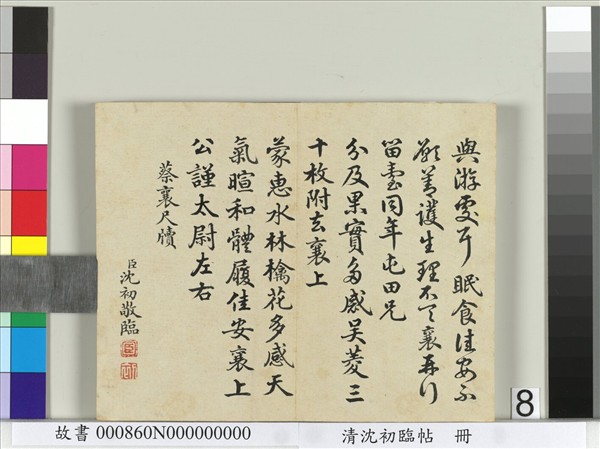 與游處耳眠食佳安不
願善護生理不襄再拜
留臺同年屯田兄
分及果實多感吳菱三
千枚附去襄上
蒙惠水林檎花多感天
氣暄和體履佳安襄上
公謹太尉左右
蔡襄尺牘
臣沈初敬臨
8
故書 000860N000000000
清沈初臨帖 冊